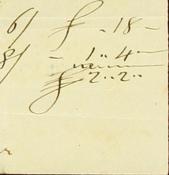 6/ £ - 18 -
8/ - 1 " 4 -
£ 2 " 2 "